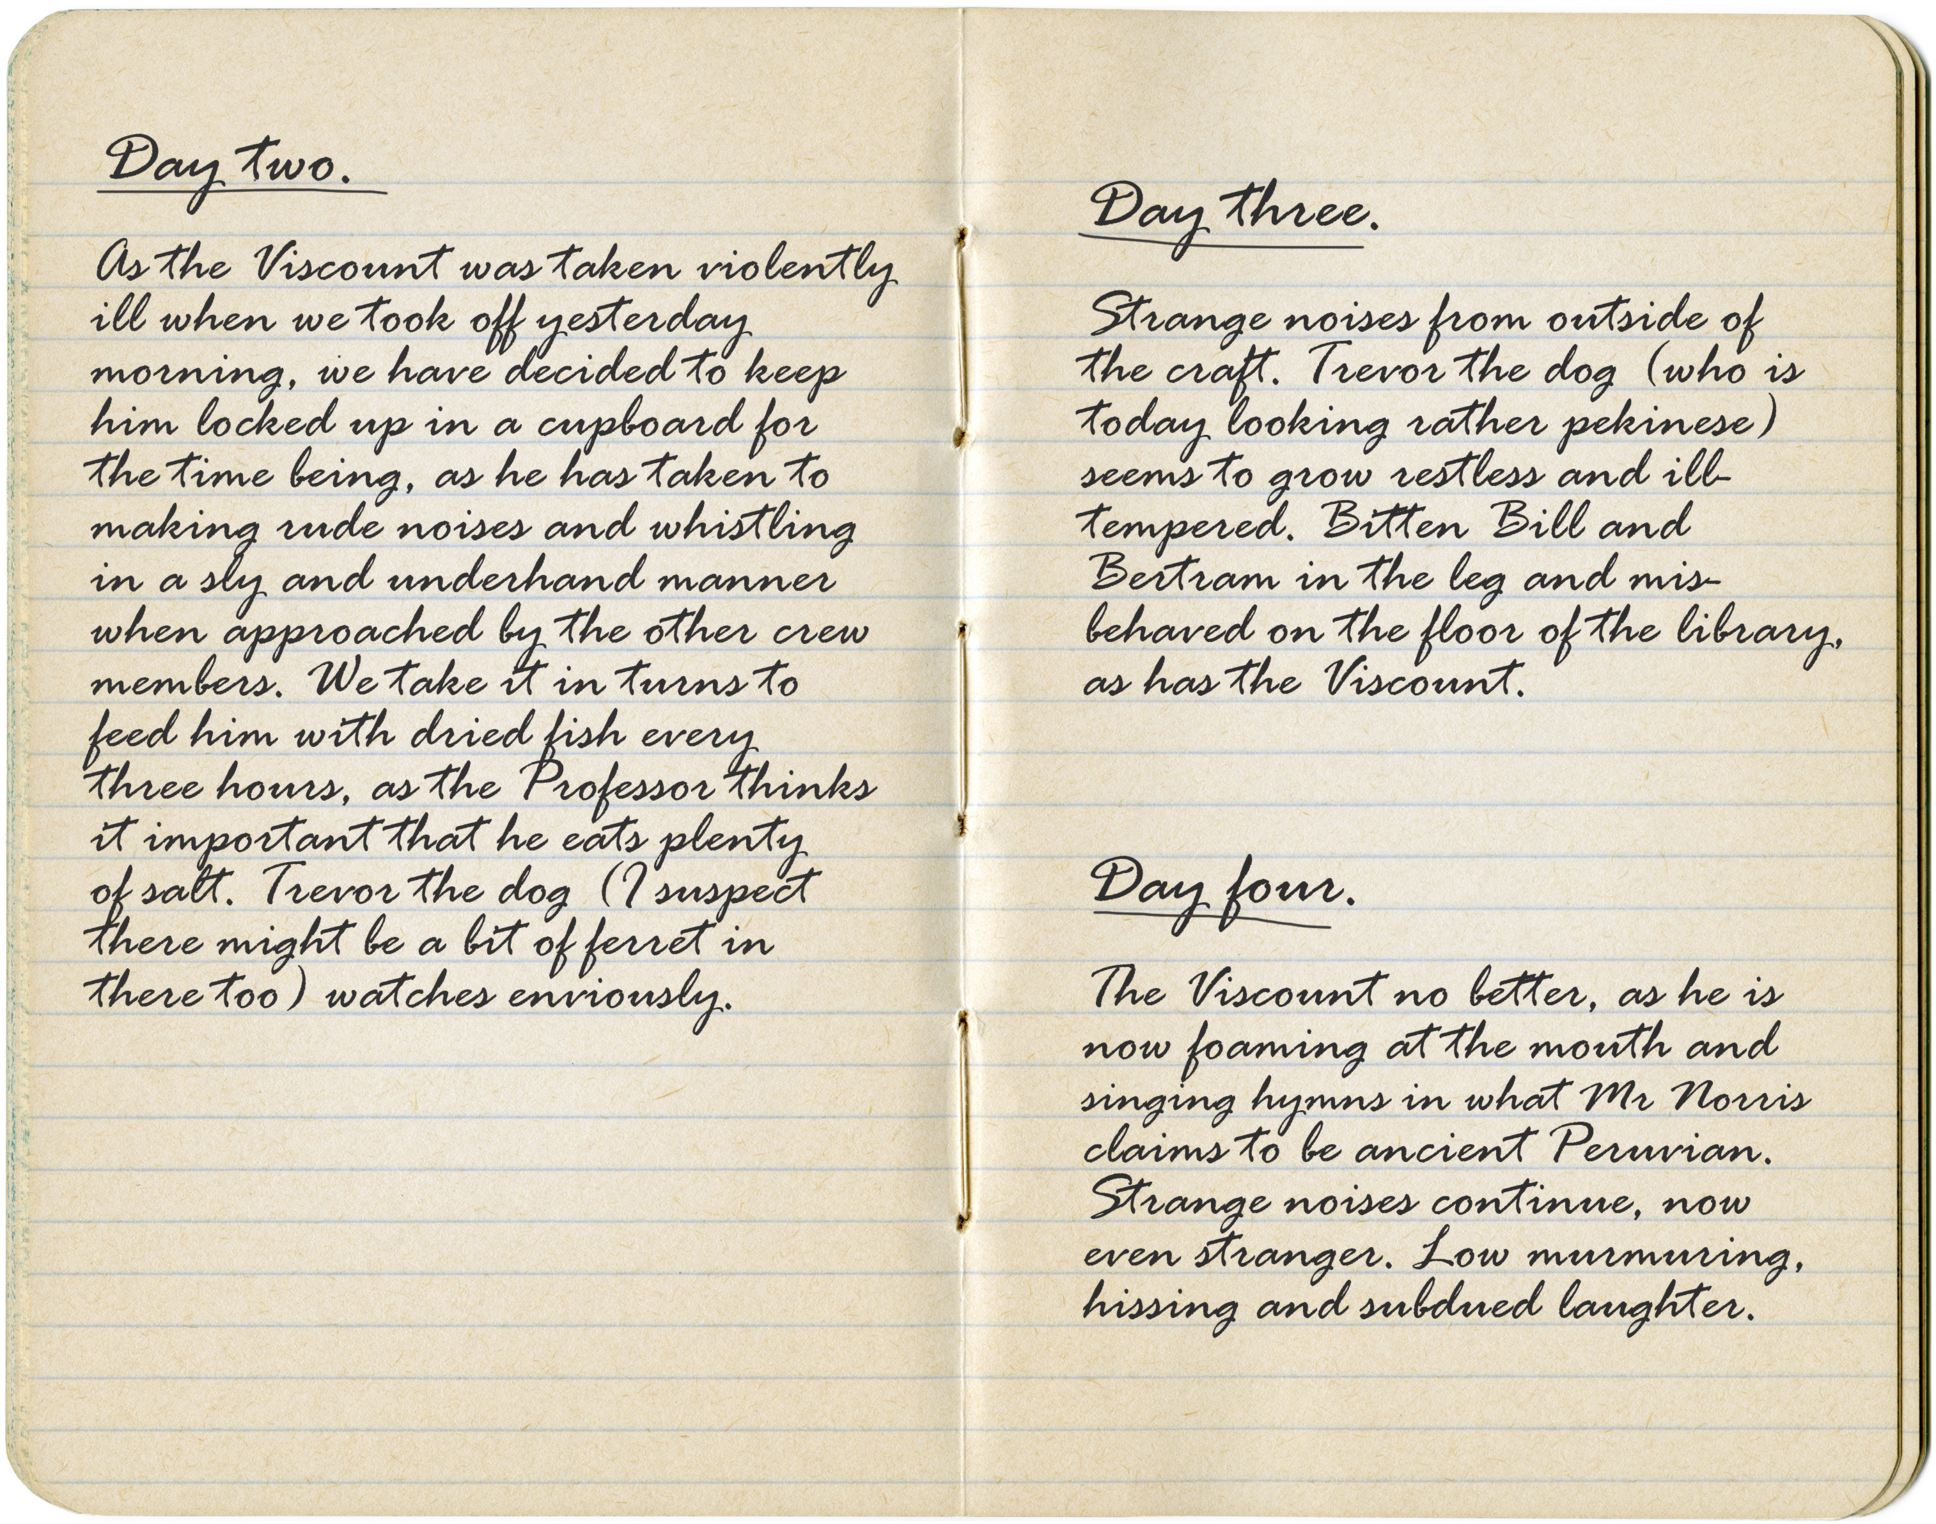 Day two.
As the Viscount was taken violently
ill when we took off yesterday
morning, we have decided to keep
him locked up in a cupboard for
the time being, as he has taken to
making rude noises and whistling
in a sly and underhand manner
when approached by the other crew
members. We take it in turns to
feed him with dried fish every
three hours, as the Professor thinks
it important that he eats plenty
of salt. Trevor the dog (I suspect
there might be a bit of ferret in
there too) watches enviously.
Day three.
Strange noises from outside of
the craft. Trevor the dog (who is
today looking rather pekinese)
seems to grow restless and ill-
tempered. Bitten Bill and
Bertram in the leg and mis-
behaved on the floor of the library,
as has the Viscount.
Day four.
The Viscount no better, as he is
now foaming at the mouth and
singing hymns in what Mr Norris
claims to be ancient Peruvian.
Strange noises continue, now
even stranger. Low murmuring,
hissing and subdued laughter.